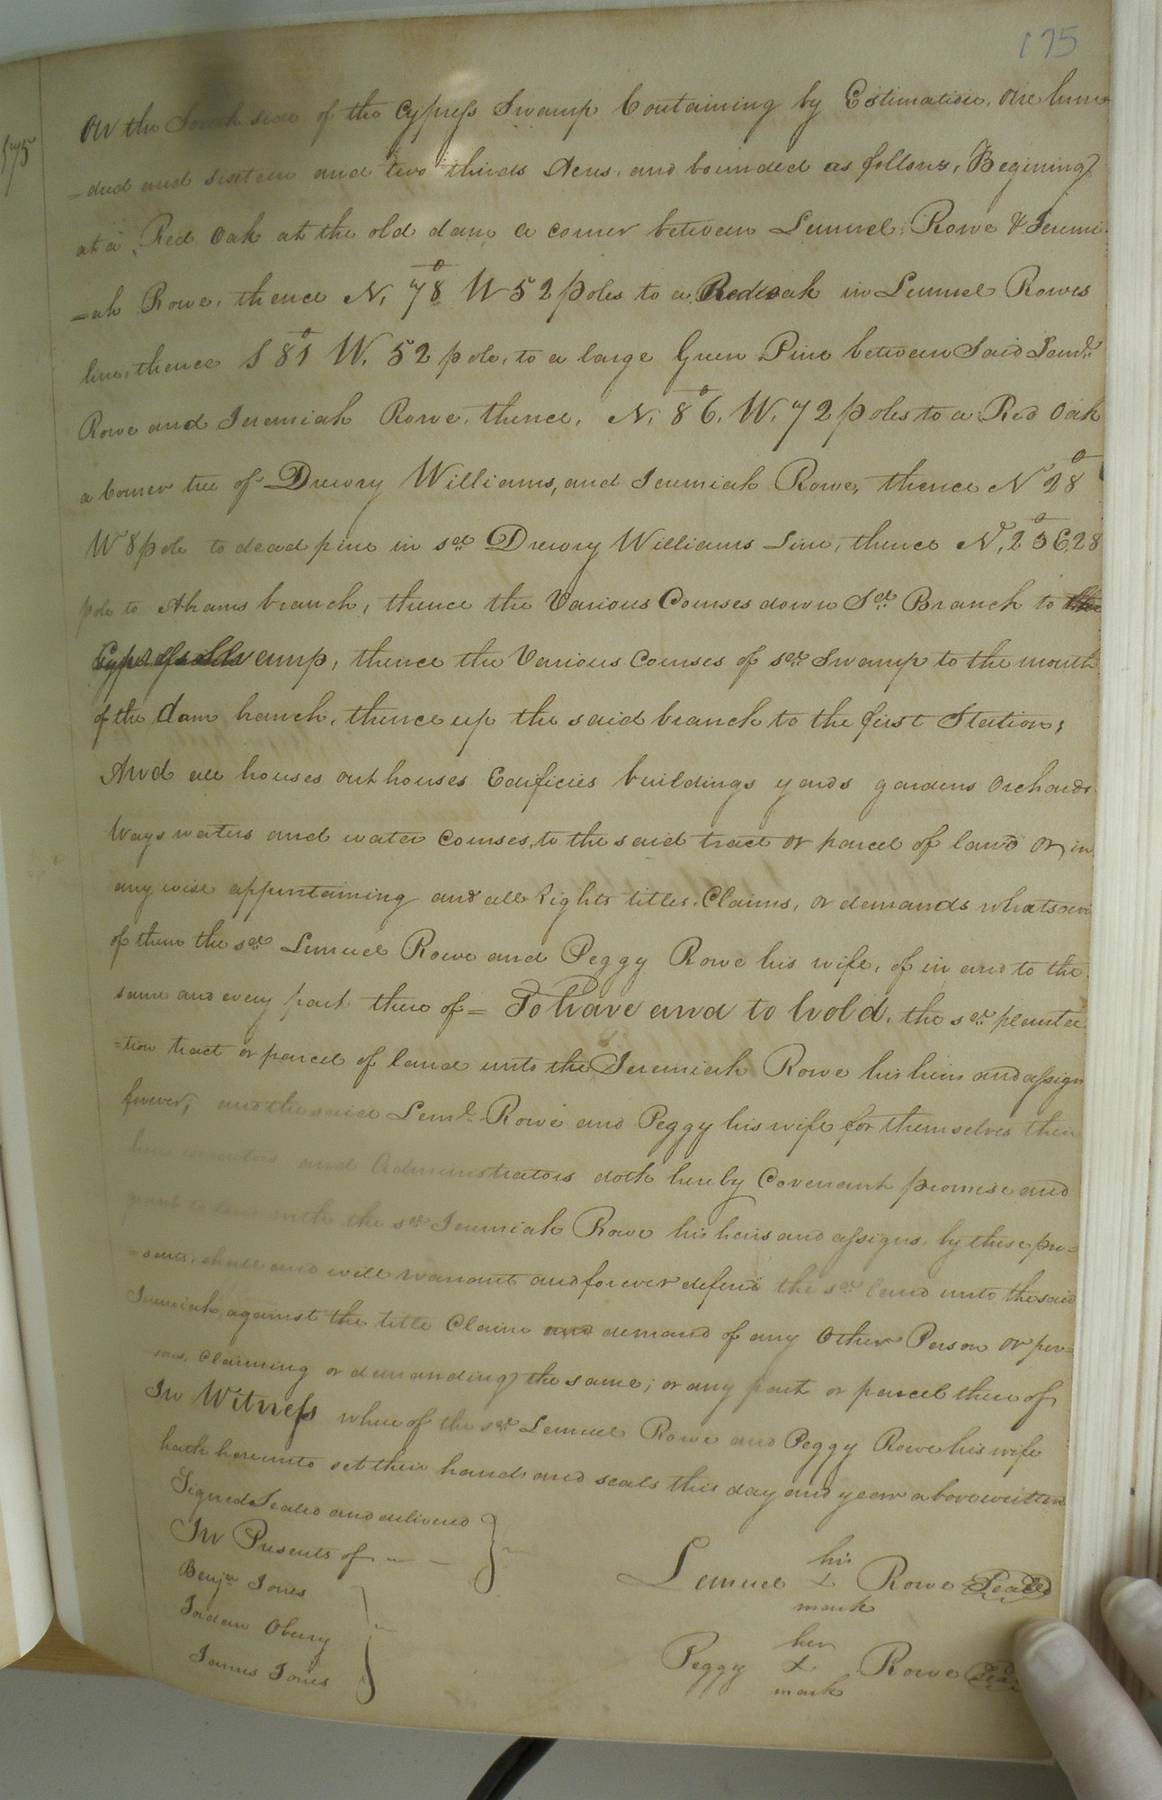 175
175
On the South side of the Cypress Swamp Containing by Estimation, one hun
=dred and sixteen and two thirds Acres, and bounded as follows, Begining
at a Red Oak at the old dam a corner between Lemuel Rowe & Jeremi
=ah Rowe, thence N, 78° W 52 poles to a Redoak in Lemuel Rowes
line, thence S 81° W. 52 pole, to a large Green Pine between Said Leml.
Rowe and Jeremiah Rowe, thence, N, 86°. W. 72 poles to a Red Oak
a Corner tree of Drewry Williams, and Jeremiah Rowe, thence N 28°
W 8 pole to dead pine in sd. Drewry Williams Line, thence N, 25° E, 28
pole to Abrams branch, thence the Various Courses down Sd. Branch to the
Cypress Swamp, thence the Various Courses of sd. Swamp to the mouth
of the dam branch, thence up the said branch to the first Station;
And all houses out houses Edificies buildings yards gardens Orchards
Ways waters and water Courses, to the said tract or parcel of land or in
any wise appurtaining and all Rights titles, Claims, or demands whatsoever
of them the sd. Lemuel Rowe and Peggy Rowe his wife, of in and to the
same and every part there of = To have and to hold, the sd. planta
=tion tract or parcel of land unto the Jeremiah Rowe his heirs and assigns
forever, and the said Leml. Rowe and Peggy his wife for themselves their
heirs executors and Administrators doth hereby Covenant promise and
grant to and with the sd. Jeremiah Rowe his heirs and assigns, by these pre=
=sents, shall and will warrant and forever defend the sd. land unto the said
Jeremiah against the title Claim and demand of any Other Person or per=
sons, Claiming or demanding the same; or any part or parcel there of
In Witness where of the sd. Lemuel Rowe and Peggy Rowe his wife
hath hereunto set their hands and seals this day and year above written
Signed Sealed and delivered
In Presents of
Benjn. Jones
Jordan Obery
James Jones
his
Lemuel X Rowe Seal
mark
her
Peggy X Rowe
mark